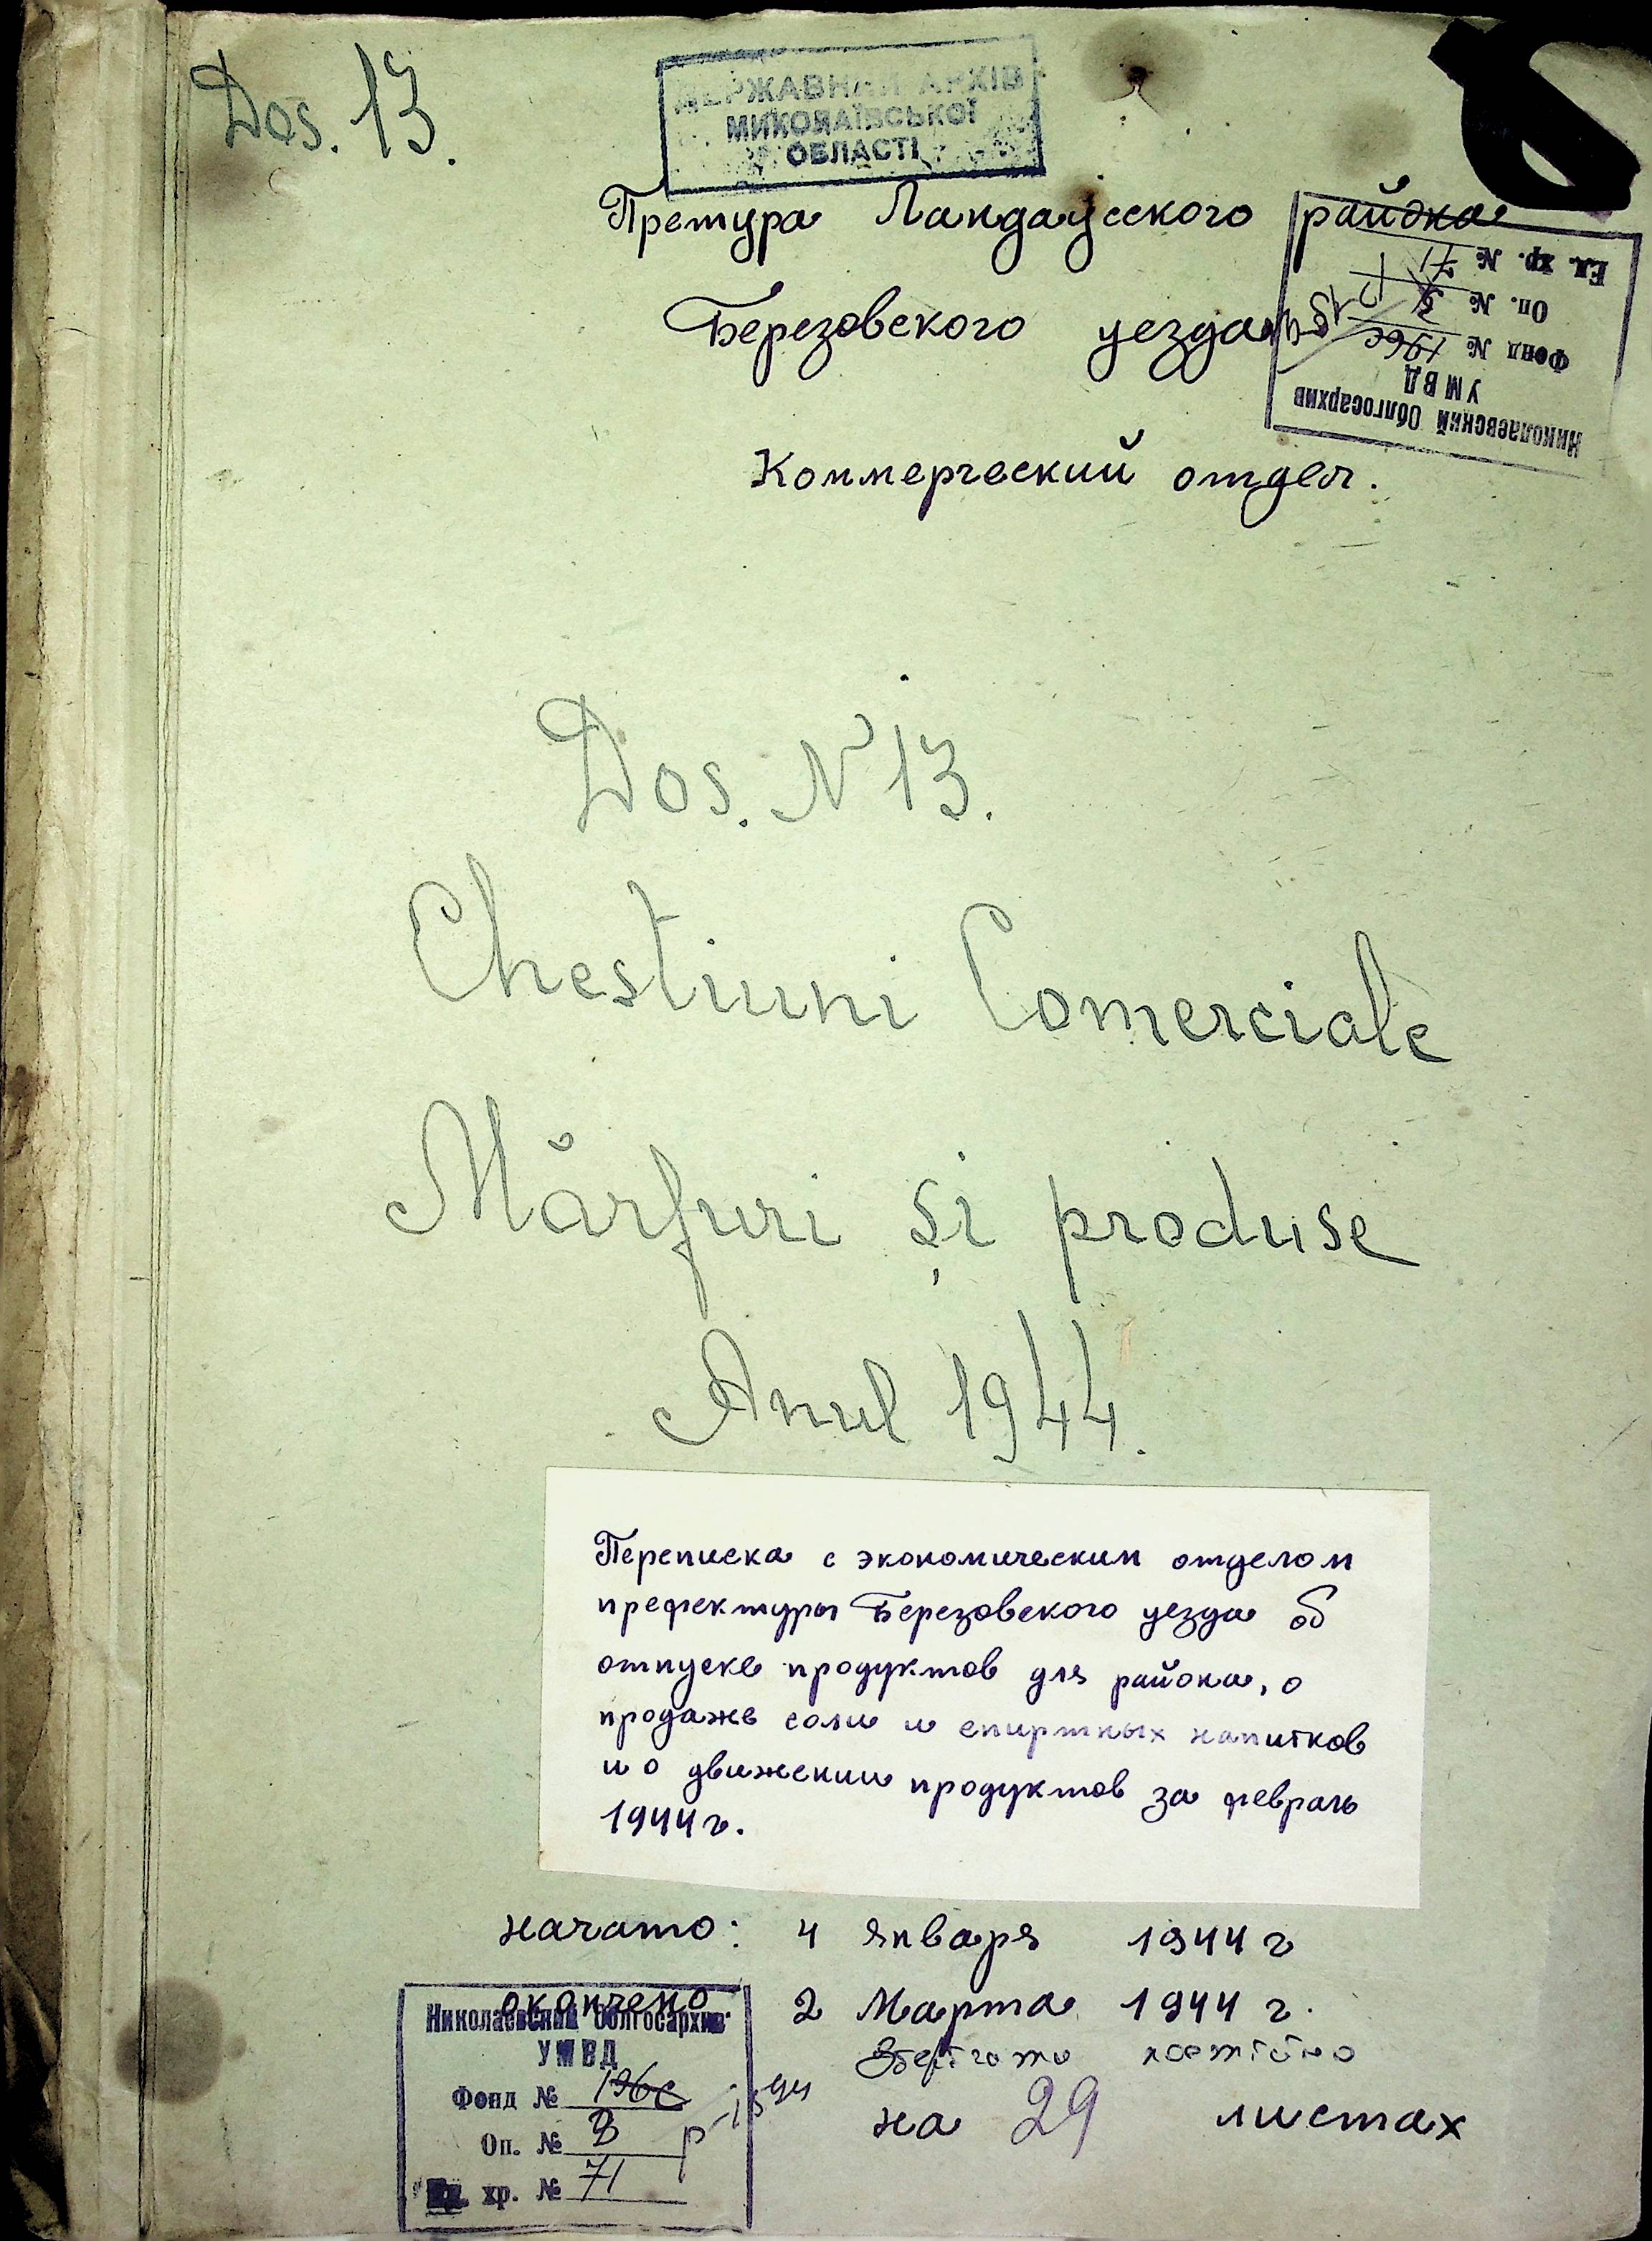 Dos. 13.
ДЕРЖАВНИЙ АРХІВ
МИКОЛАЇВСЬКОЇ
ОБЛАСТІ
Претура Ландауского района
Березовского уезда
Коммерческий отдел.
Николаевский Облгосархив
УМВД
Фонд № 196с
Оп. №
Ед. хр. № 71
Dos. N 13.
Chestiuni Comerciale
Mărfuri și produse
Anul 1944.
Переписка с экономическим отделом
префектуры Березовского уезда об
отпуске продуктов для района, о
продаже соли и спиртных напитков
и о движении продуктов за февраль
1944г.
начато: 4 января 1944 г
окончено 2 Марта 1944 г.
Зберігати постійно
на 29 листах
Николаевский Облгосархив
УМВД
Фонд № 196с
Оп. № 3
хр. № 71